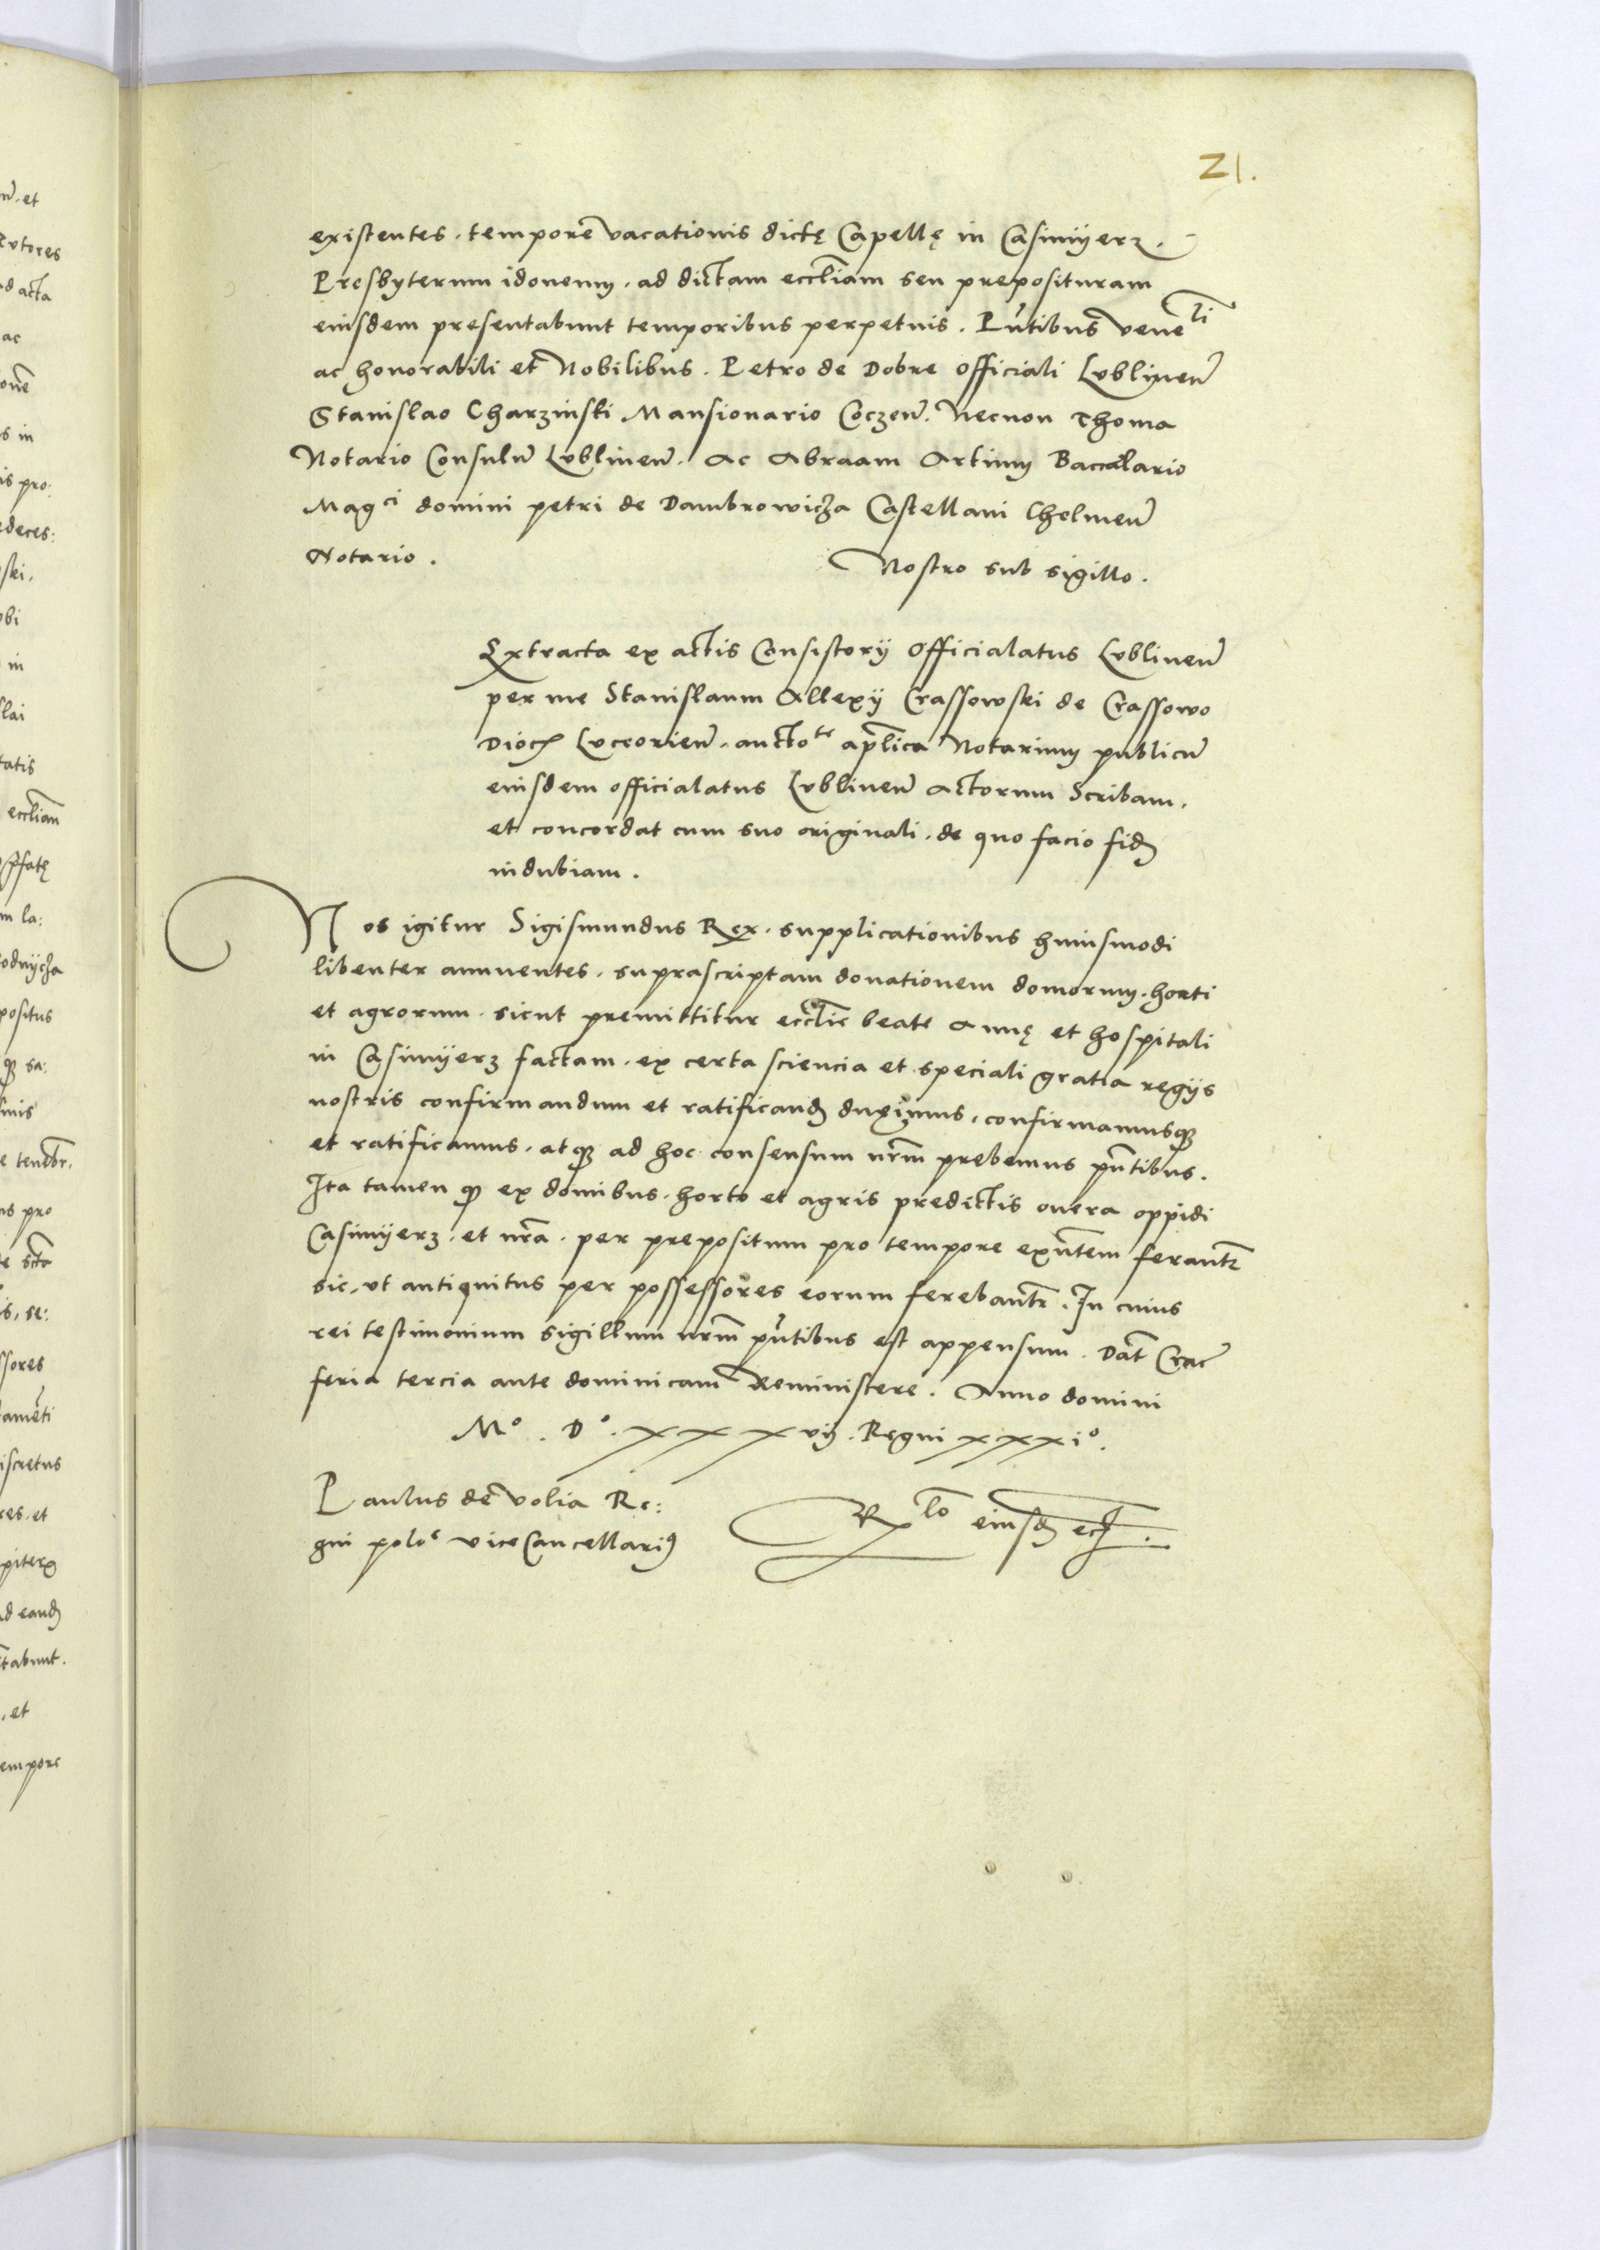 21.
existentes. tempore vacationis dictę Capellę in Casimÿerz.
Presbyterum idoneum. ad dictam eccłiam seu preposituram
eiusdem presentabunt temporibus perpetuis. Pñtibus veneli
ac honorabili et Nobilibus. Petro de Dobre Officiali Lvblineñ
Stanislao Charzinski Mansionario Coczeñ. Necnon Thoma
Notario Consulũ Lvblineñ. Ac Abraam Artium Baccalario
Magci domini petri de Dambrowicza Castellani Chelmeñ
Notario. Nostro sub sigillo.
Extracta ex actis Consistorÿ Officialatus Lvblineñ
per me Stanislaum Allexÿ Crassowski de Crassowo
Dioc̃ Lvceorieñ. auctote apłica Notarium publicũ
eiusdem officialatus Lvblineñ Actorum Scribam.
et concordat cum suo originali. de quo facio fidẽ
indubiam.
Nos igitur Sigismundus Rex. supplicationibus huiusmodi
libenter annuentes. suprascriptam donationem domorum. horti
et agrorum. sicut premittitur eccłie beate Annę et hospitali
in Casimÿerz factam. ex certa sciencia et speciali gratia regÿs
nostris confirmandum et ratificandũ duximus. confirmamusqꝫ
et ratificamus. atqꝫ ad hoc consensum nr̃m prebemus pñtibus.
Ita tamen qꝫ ex domibus. horto et agris predictis onera oppidi
Casimÿerz. et nr̃a. per prepositum pro tempore exñtem ferantr̃
sic. vt antiquitus per possessores eorum ferebantr̃. In cuius
rei testimonium sigillum nr̃m pñtibus est appensum. Dat̃ Crac̃
feria tercia ante dominicam Reminiscere. Anno domini
Mo. Do. xxxvij. Regni xxxio.
Paulus de volia Re:
gni polo. viceCancellariꝰ
Rlo eiusdẽ ec̃